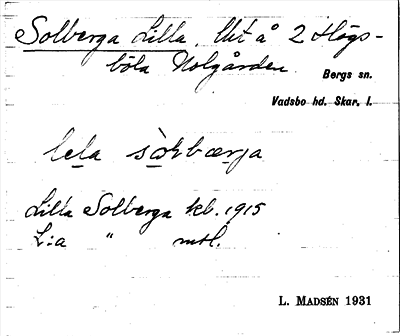 Solberga Lilla, Utå 2 Högs-
böla Nolgården
Bergs sn.
Vadsbo hd. Skar. l.
lela
Lilla Solberga kb. 1915
L:a " mtl.
L. MADSÉN 1931